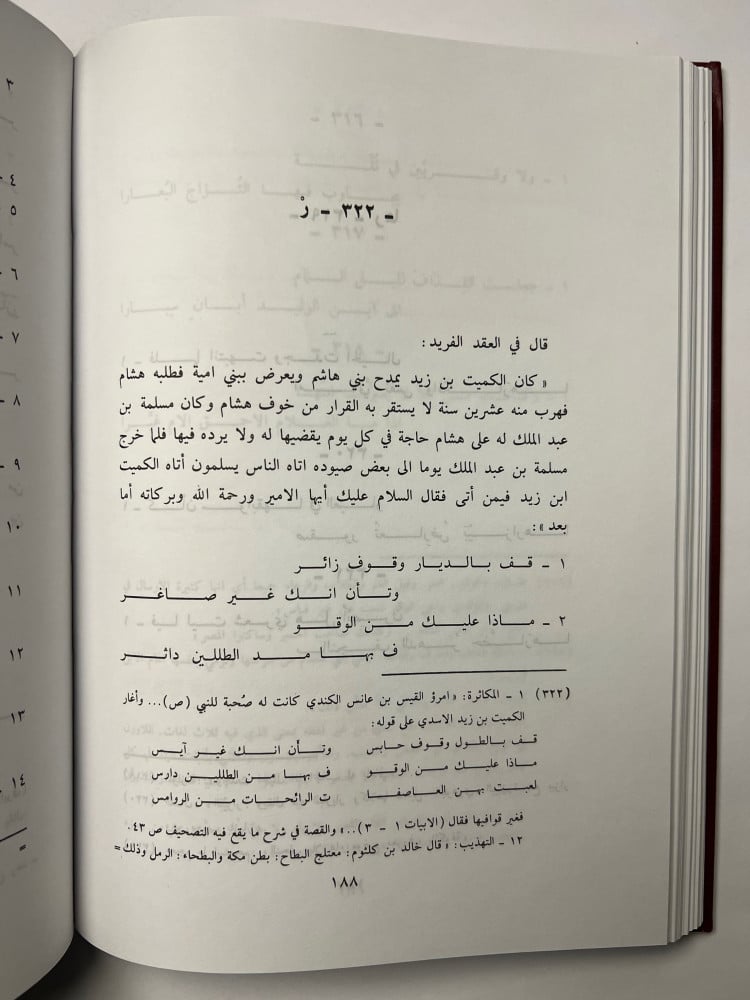 ـ ٣٢٢ ـ رْ
قال في العقد الفريد :
« كان الكميت بن زيد يمدح بني هاشم ويعرض ببني امية فطلبه هشام
فهرب منه عشرين سنة لا يستقر به القرار من خوف هشام وكان مسلمة بن
عبد الملك له على هشام حاجة في كل يوم يقضيها له ولا يرده فيها فلما خرج
مسلمة بن عبد الملك يوما الى بعض صيوده اتاه الناس يسلمون أتاه الكميت
ابن زيد فيمن أتى فقال السلام عليك أيها الامير ورحمة الله وبركاته أما
بعد » :
١ ـ قـف بـالـديـار وقـوف زائـر
وتـأن انـك غـيـر صـاغـر
٢ ـ مـاذا عليـك مـن الـوقـو
ف بهـا مـد الطللـين دائـر
(٣٢٢) ١ ـ المكاثرة : « امرؤ القيس بن عانس الكندي كانت له صُحبة للنبي (ص) ... وأغار
الكميت بن زيد الاسدي على قوله :
قـف بـالطول وقـوف حـابس وتـأن انـك غـيـر آيـس
مـاذا عليـك مـن الوقـو ف بهـا مـن الطللـين دارس
لعبـت بهـن العـاصفـا ت الرائحـات مـن الروامس
فغير قوافيها فقال (الابيات ١ ـ ٣) .. » والقصة في شرح ما يقع فيه التصحيف ص ٤٣ .
١٢ ـ التهذيب : « قال خالد بن كلثوم : معتلج البطاح : بطن مكة والبطحاء : الرمل وذلك =
١٨٨
٣
٤
٥
٦
٧
٨
٩
١٠
١١
١٢
١٣
١٤
=